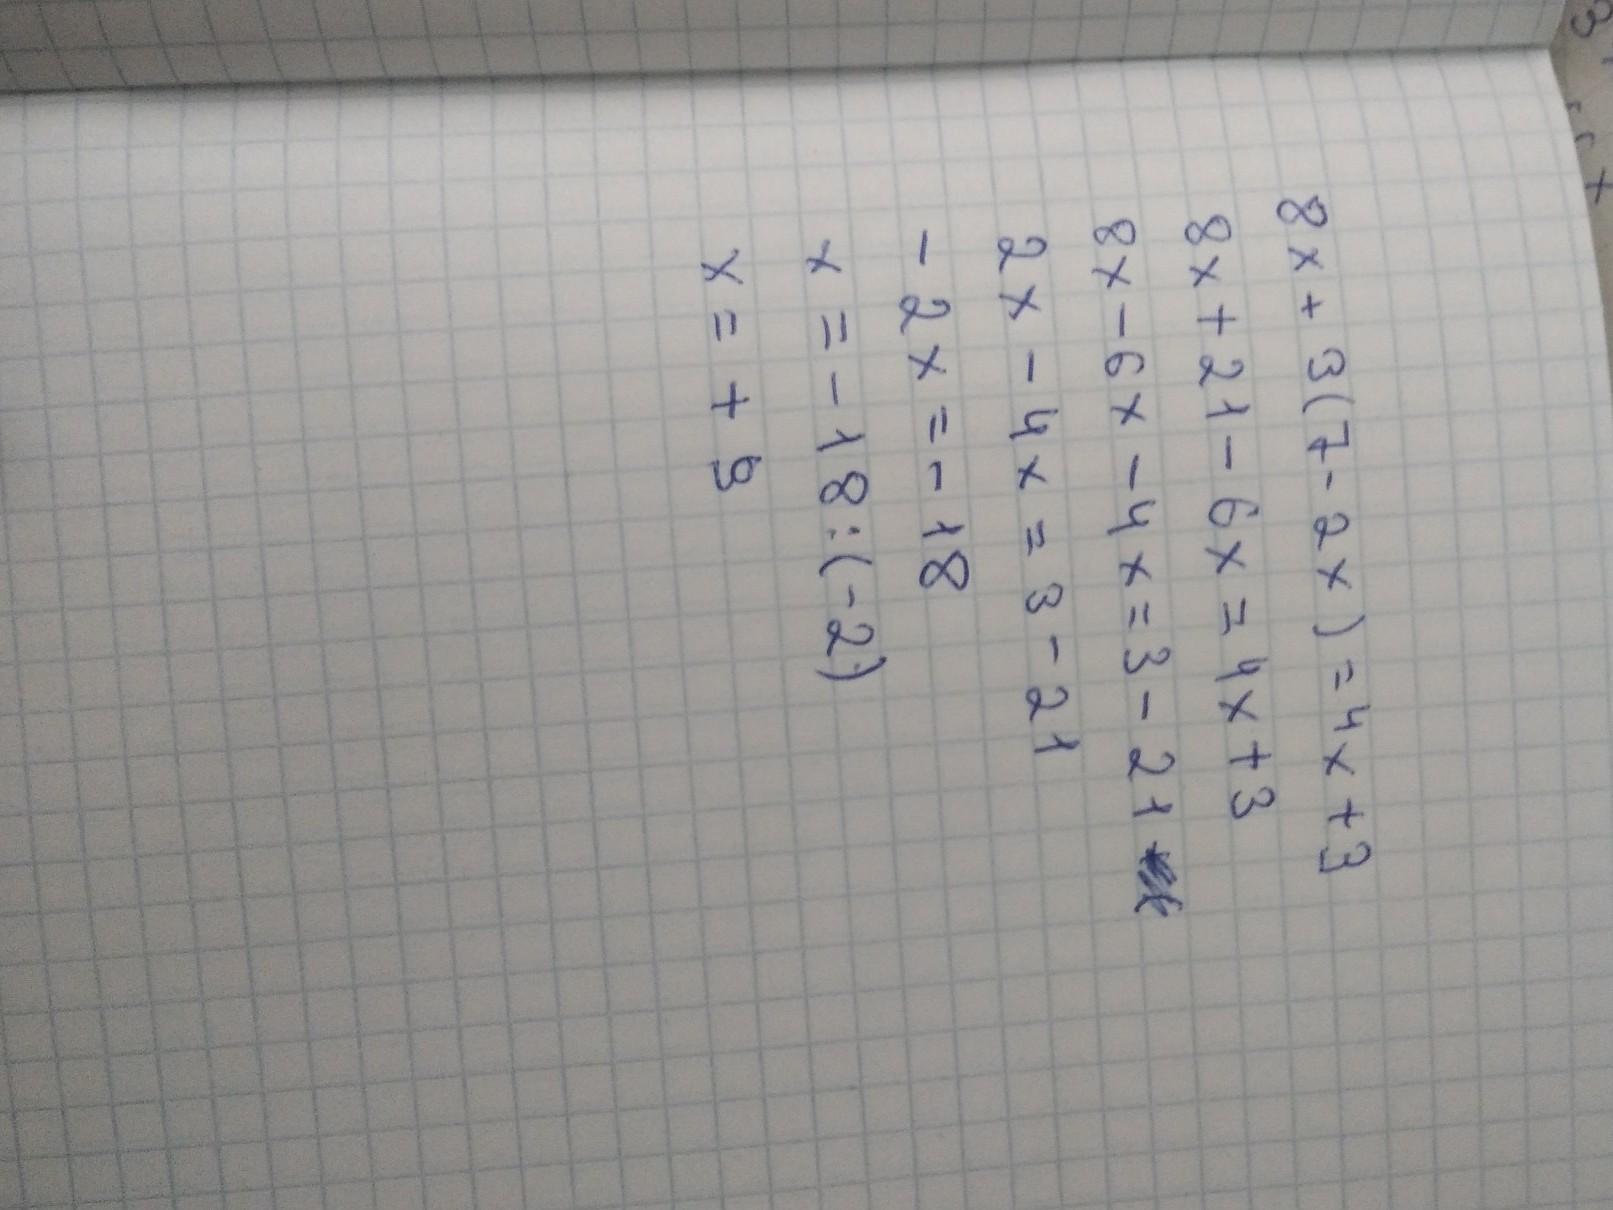 8x + 3(7 - 2x) = 4x + 3
8x + 21 - 6x = 4x + 3
8x - 6x - 4x = 3 - 21
2x - 4x = 3 - 21
- 2x = - 18
x = - 18 : (-2)
x = + 9